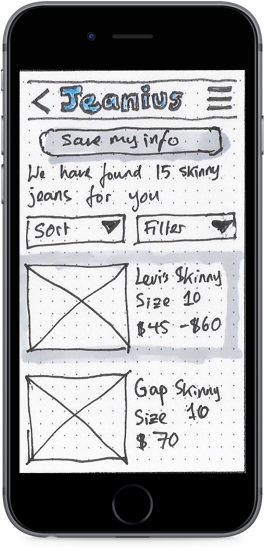 Jeanius
Save my info
We have found 15 skinny
jeans for you
Sort
Filter
Levi's Skinny
Size 10
$45 - $60
Gap Skinny
Size 10
$ 70